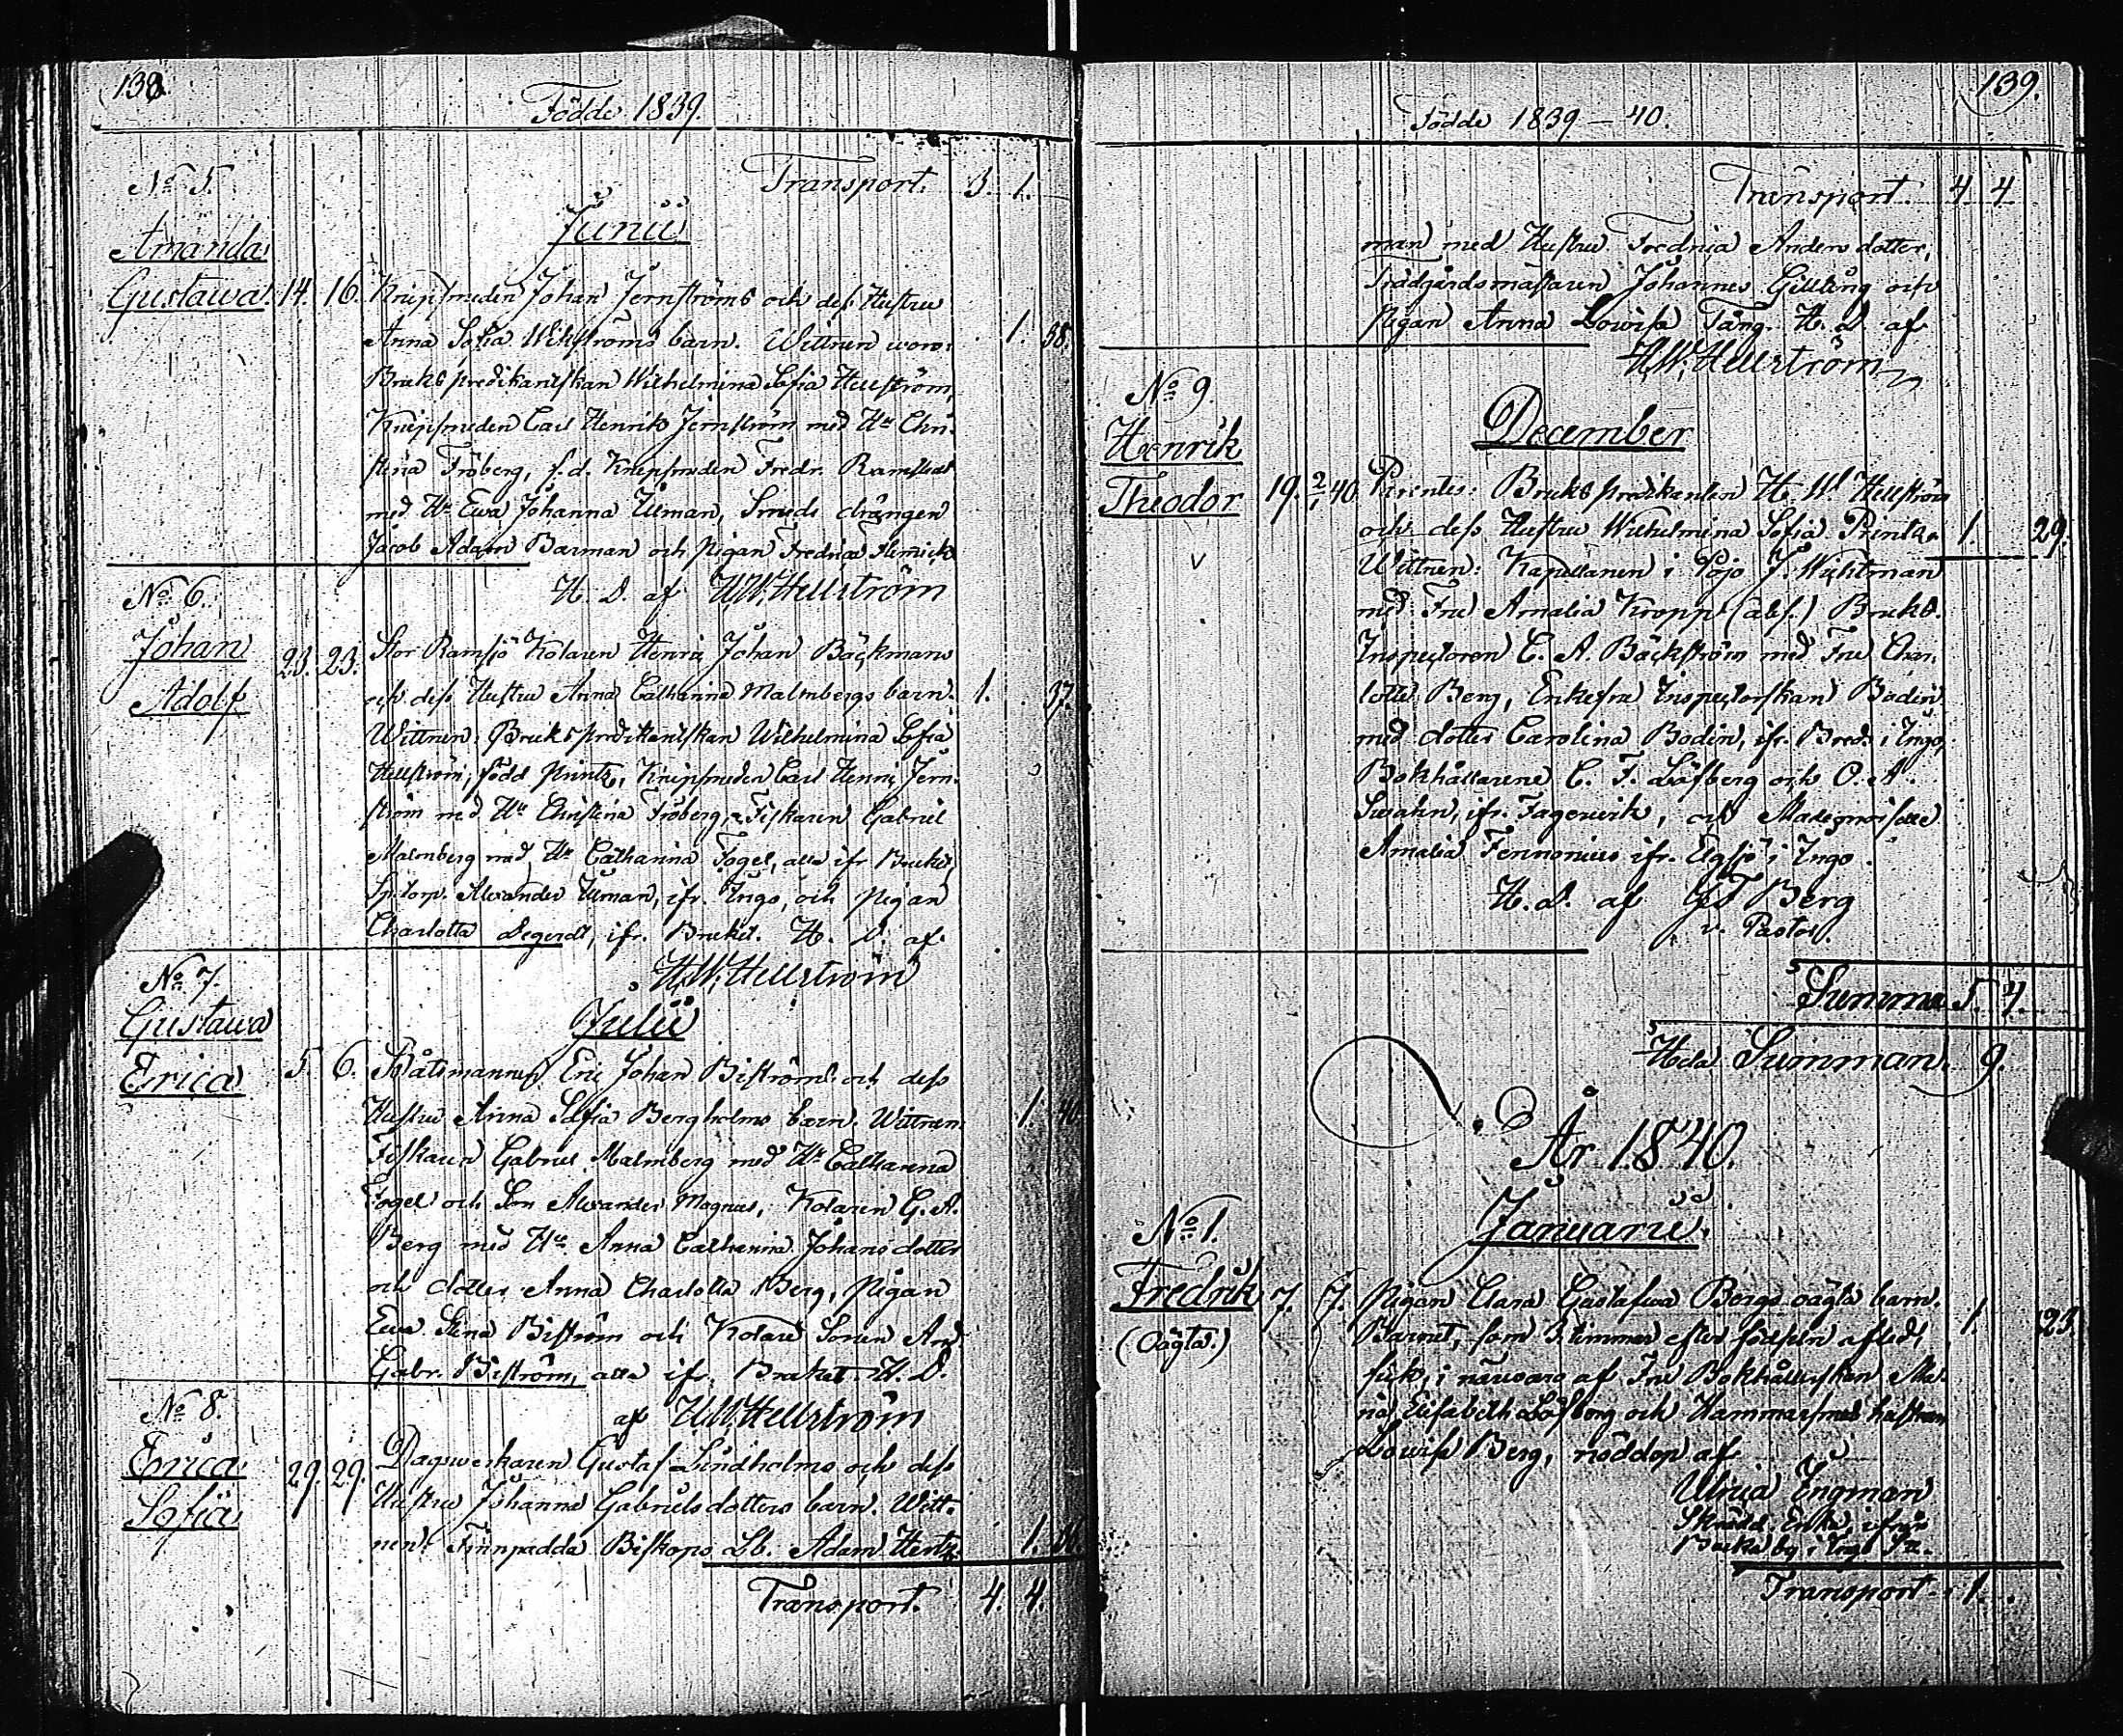 138.
Födde 1839.
No 5. Transport. 3. 1.
Junii
Amanda
Gustava. 14. 16. Knipsmeden Johan Jernströms och dess Hustru
Anna Sofia Wikströms barn. Wittnen woro: 1. 38.
Brukspredikantskan Wilhelmina Sofia Hellström,
Knipsmeden Carl Henrik Jernström med Hu Chri-
stina Fröberg, f.d. Knipsmeden Fredr. Ramstedt
med Hu Ewa Johanna Ulman, Smeds drängen
Jacob Adam Barman och pigan Fredrica
H. D. af H.W. Hellström
No 6.
Johan
Adolf 23. 23. Stor Ramsjö Kolaren Henric Johan Bäckmans
och dess Hustru Anna Catharina Malmbergs barn. 1. 37.
Wittnen: Brukspredikantskan Wilhelmina Sofia
Hellström, född Printz, Knipsmeden Carl Henric Jern-
ström med Hu Christina Fröberg, Fiskaren Gabriel
Malmberg med Hu Catharina Fogel, alla ifr Bruket,
Alexander Ulman, ifr. Ingo, och pigan
Charlotta Segerdt, ifr. Bruket. H. D. af
H.W. Hellström
No 7.
Julii
Gustava
Erica 5. 6. Båtsmannen Eric Johan Biströms och dess
Hustru Anna Sofia Bergholms barn. Wittnen 1. 40.
Fiskaren Gabriel Malmberg med Hu Catharina
Fogel och Son Alexander Magnus, Kolaren G. A.
Berg med Hu Anna Catharina Johansdotter
och dotter Anna Charlotta Berg, pigan
Ewa Stina Biström och Kolare Sonen And
Gabr. Biström, alla ifr. Bruket. H. D.
af H.W. Hellström
No 8.
Erica
Sofia 29. 29. Dagswerkaren Gustaf Lindholms och dess
Hustru Johanna Gabrielsdotters barn. Witt-
nen: Finnpadda Biskops Lb. Adam Hertz 1.
Transport. 4. 4.
139.
Födde 1839-40.
Transport. 4 4
man med Hustru Fredrica Andersdotter,
Trädgårdsmästaren Johannes Gillberg och
pigan Anna Lowisa Tång. H. D. af
H.W. Hellström
No 9.
December
Henrik
Theodor 19. 2/1 40 Parentes: Brukspredikanten H. W. Hellström
och dess Hustru Wilhelmina Sofia Printz. 1. 29.
Wittnen: Kapellanen i Pojo J. Wichtman
med Fru Amalia Kropp (abs.) Bruks-
Inspectoren C. A. Bäckström med Fru Char-
lotte Berg, Enkefru Inspectorskan Bodin
med dotter Carolina Bodin, ifr. Breds i Ingo,
Bokhållarene C. F. Löfberg och O. A.
Swahn, ifr. Fagerwik, och Mademoiselle
Amalia Fennonius ifr. Elgsjö i Ingo.
H. D. af Berg
v. Pastor.
Summa 5. 4.
Hela Summan. 9.
År 1840.
Januarii.
No 1.
Fredrik 7. 7. Pigan Clara Gustafwa Bergs oägta barn. 1. 23.
(Oägta.) Barnet, som 3 timmar efter födseln afled,
fick, i närwaro af Fru Bokhållerskan Ma-
ria Elisabeth Löfberg och Hammarsmeds hustrun
Lowisa Berg, nöddop af
Ulrica Engman
Skrädd. Enka, ifrån
Backa by i Ingo
Transport. 1.